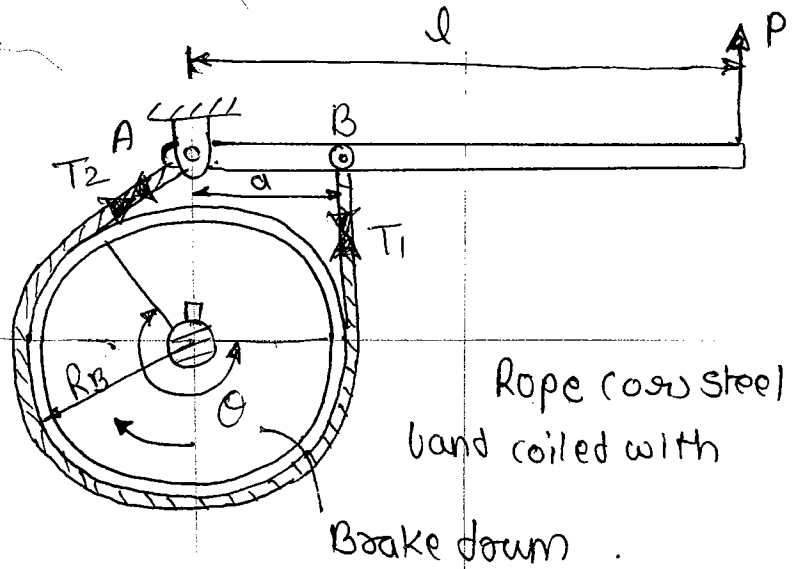 l
P
A
B
T2
a
T1
RB
θ
Rope (or) steel
band coiled with
Brake drum .